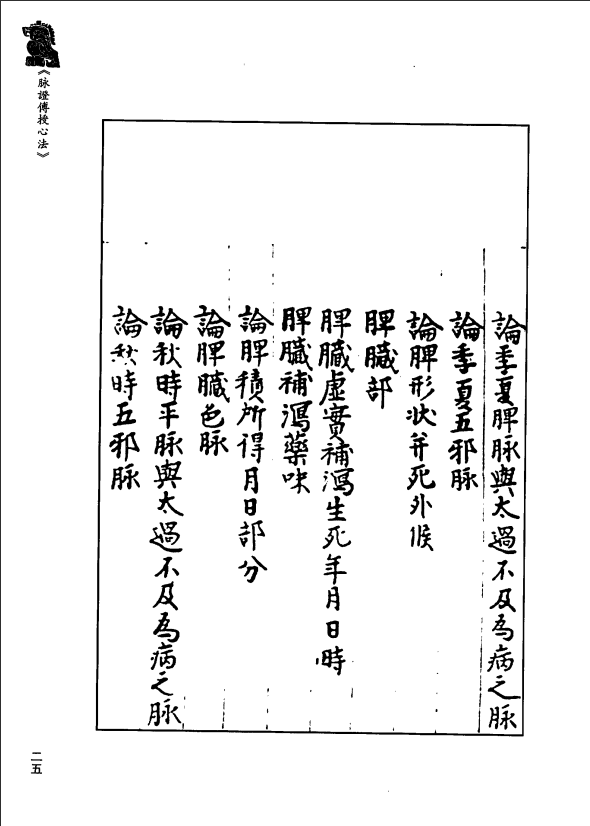 《脉證傳授心法》
論季夏脾脉與太過不及為病之脉
論季夏五邪脉
論脾形状并死外候
脾臟部
脾臟虛實補瀉生死年月日時
脾臟補瀉藥味
論脾積所得月日部分
論脾臟色脉
論秋時平脉與太過不及為病之脉
論秋時五邪脉
二五